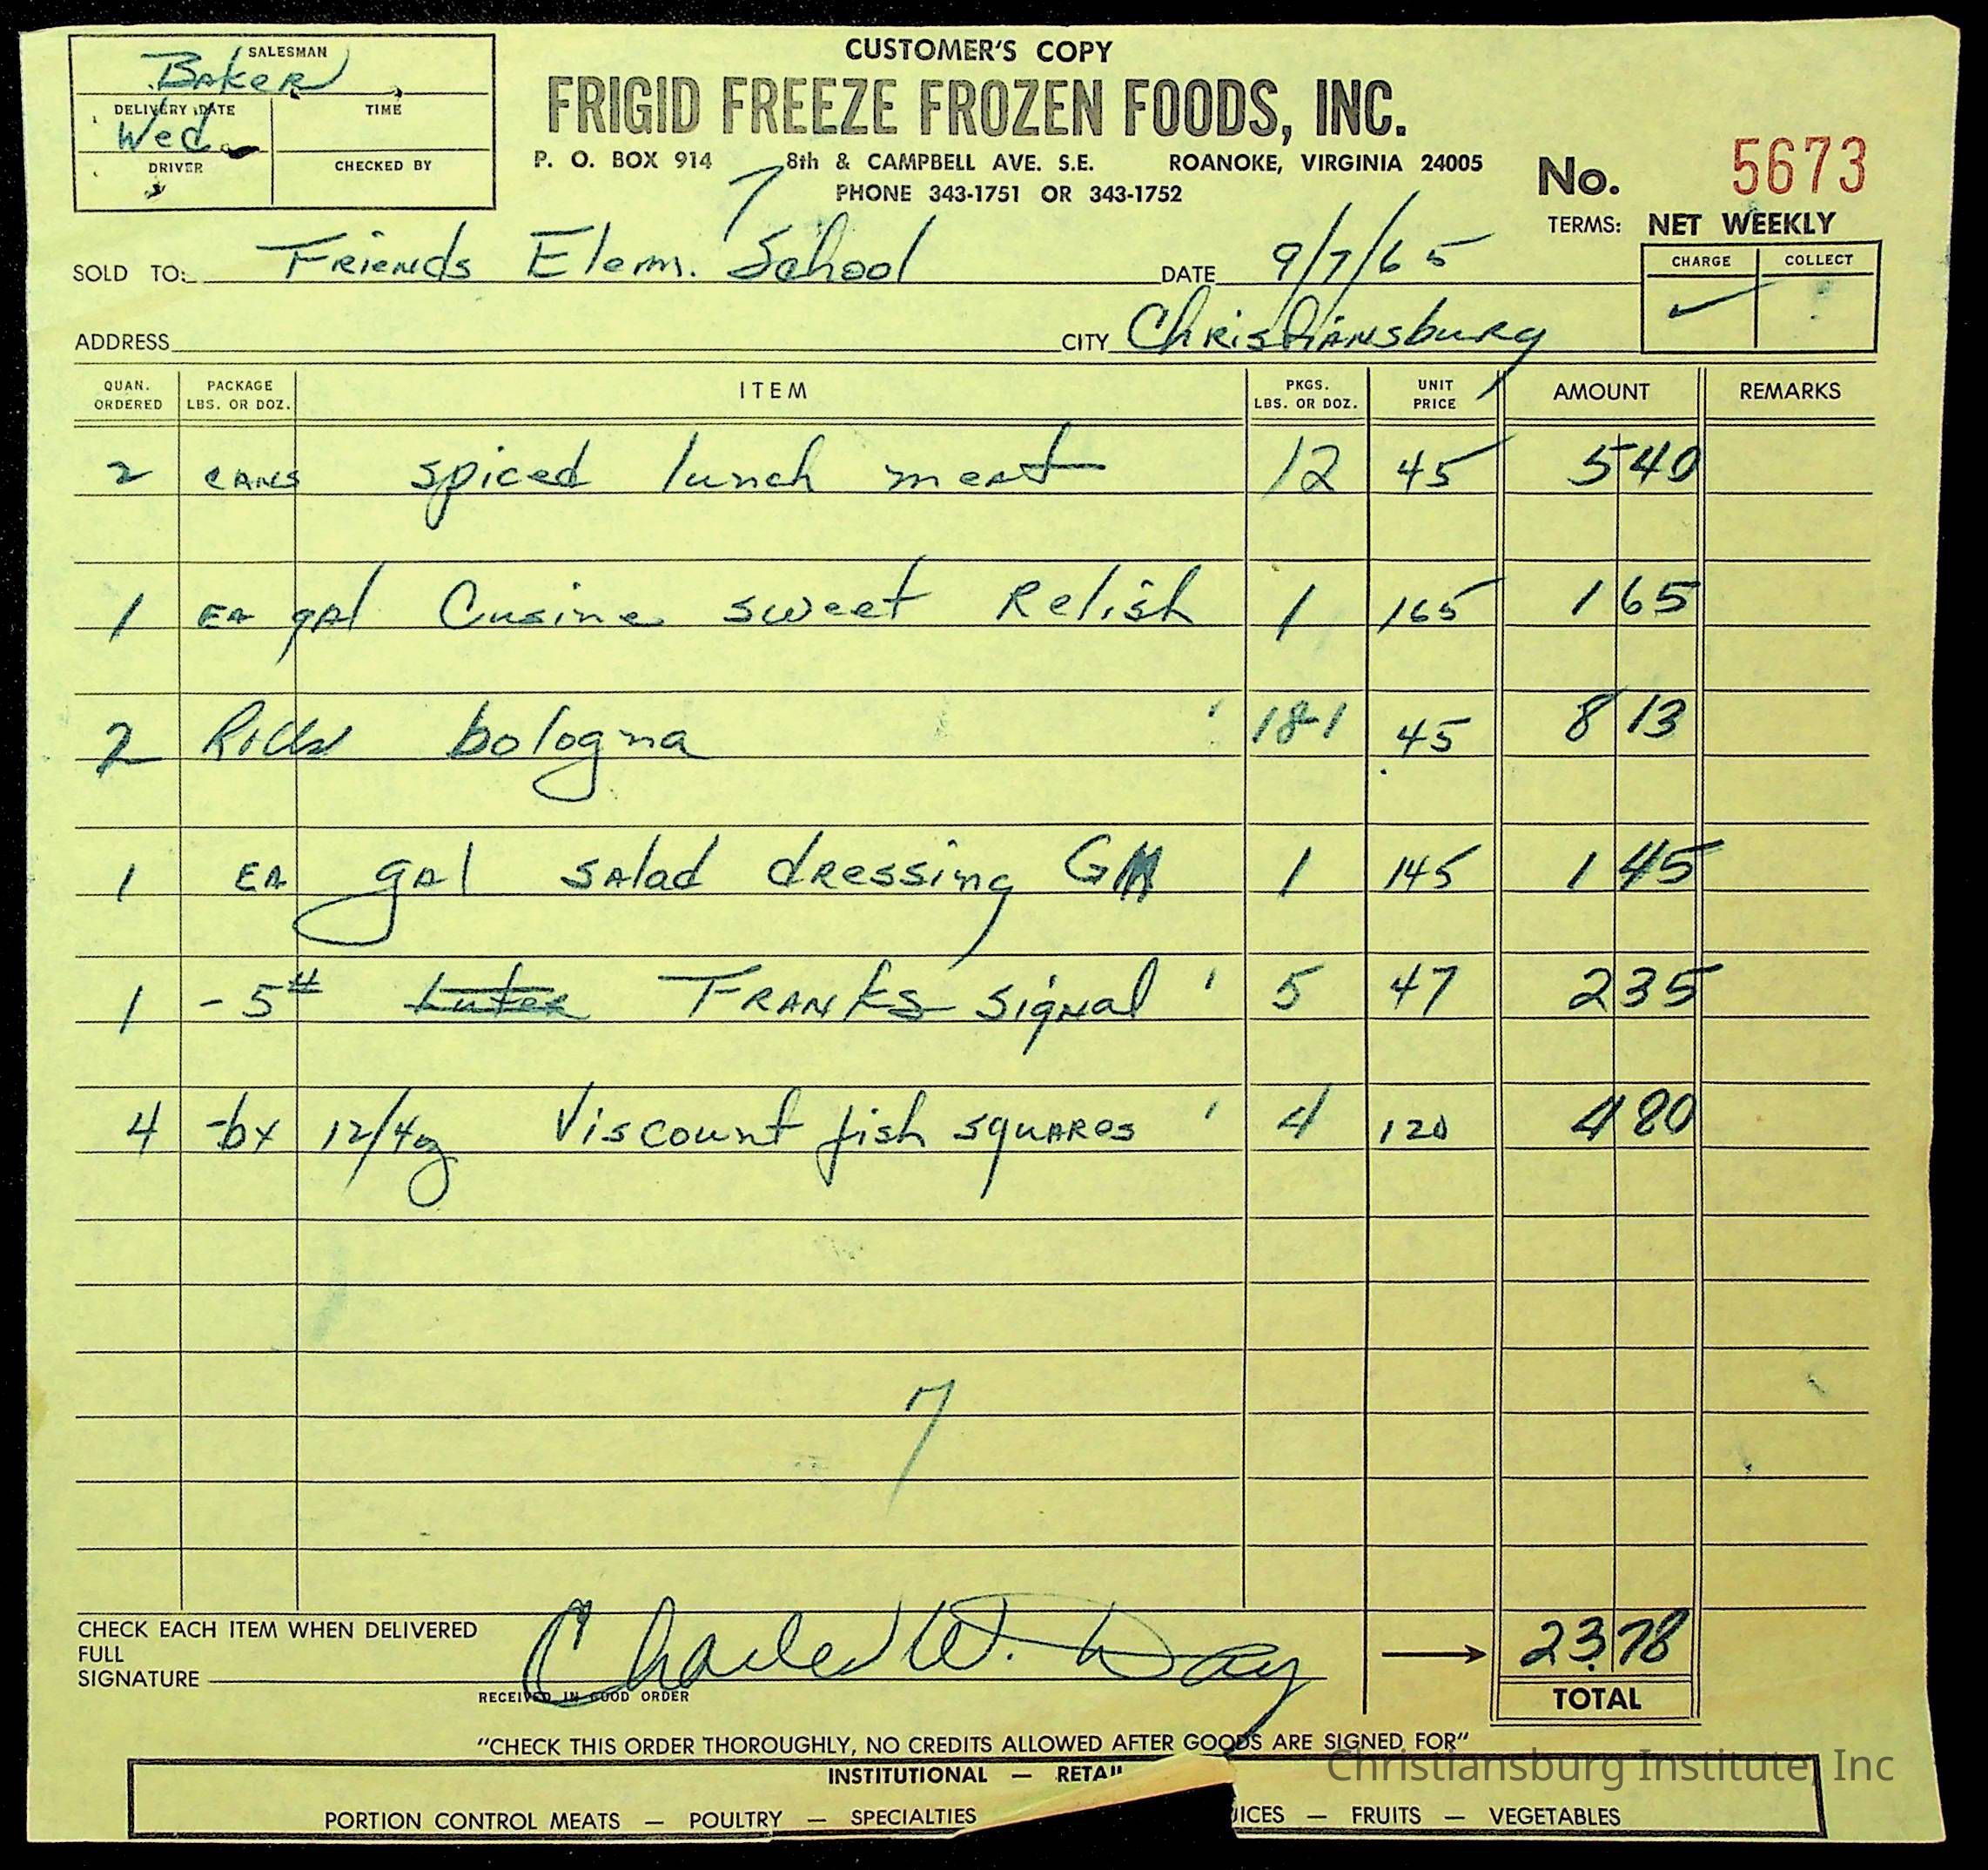 CUSTOMER'S COPY
SALESMAN
Baker
DELIVERY DATE TIME
Wed.
DRIVER CHECKED BY
FRIGID FREEZE FROZEN FOODS, INC.
P. O. BOX 914 8th & CAMPBELL AVE. S.E. ROANOKE, VIRGINIA 24005
PHONE 343-1751 OR 343-1752
No. 5673
TERMS: NET WEEKLY
CHARGE COLLECT
✓
7
SOLD TO: Friends Elem. School DATE 9/7/65
ADDRESS CITY Christiansburg
QUAN. ORDERED PACKAGE LBS. OR DOZ. ITEM PKGS. LBS. OR DOZ. UNIT PRICE AMOUNT REMARKS
2 cans spiced lunch meat 12 45 5 40
1 EA gal Cusine sweet Relish 1 165 1 65
2 Rolls bologna 18-1 45 8 13
1 EA gal salad dressing 1 145 1 45
1 - 5# Franks signal 5 47 2 35
4 -bx 12/4oz Viscount fish squares 4 120 4 80
7
CHECK EACH ITEM WHEN DELIVERED
FULL
SIGNATURE Charles W. Day 23.78
RECEIVED IN GOOD ORDER TOTAL
"CHECK THIS ORDER THOROUGHLY, NO CREDITS ALLOWED AFTER GOODS ARE SIGNED FOR"
Christiansburg Institute, Inc
INSTITUTIONAL — RETAIL
PORTION CONTROL MEATS — POULTRY — SPECIALTIES UICES — FRUITS — VEGETABLES